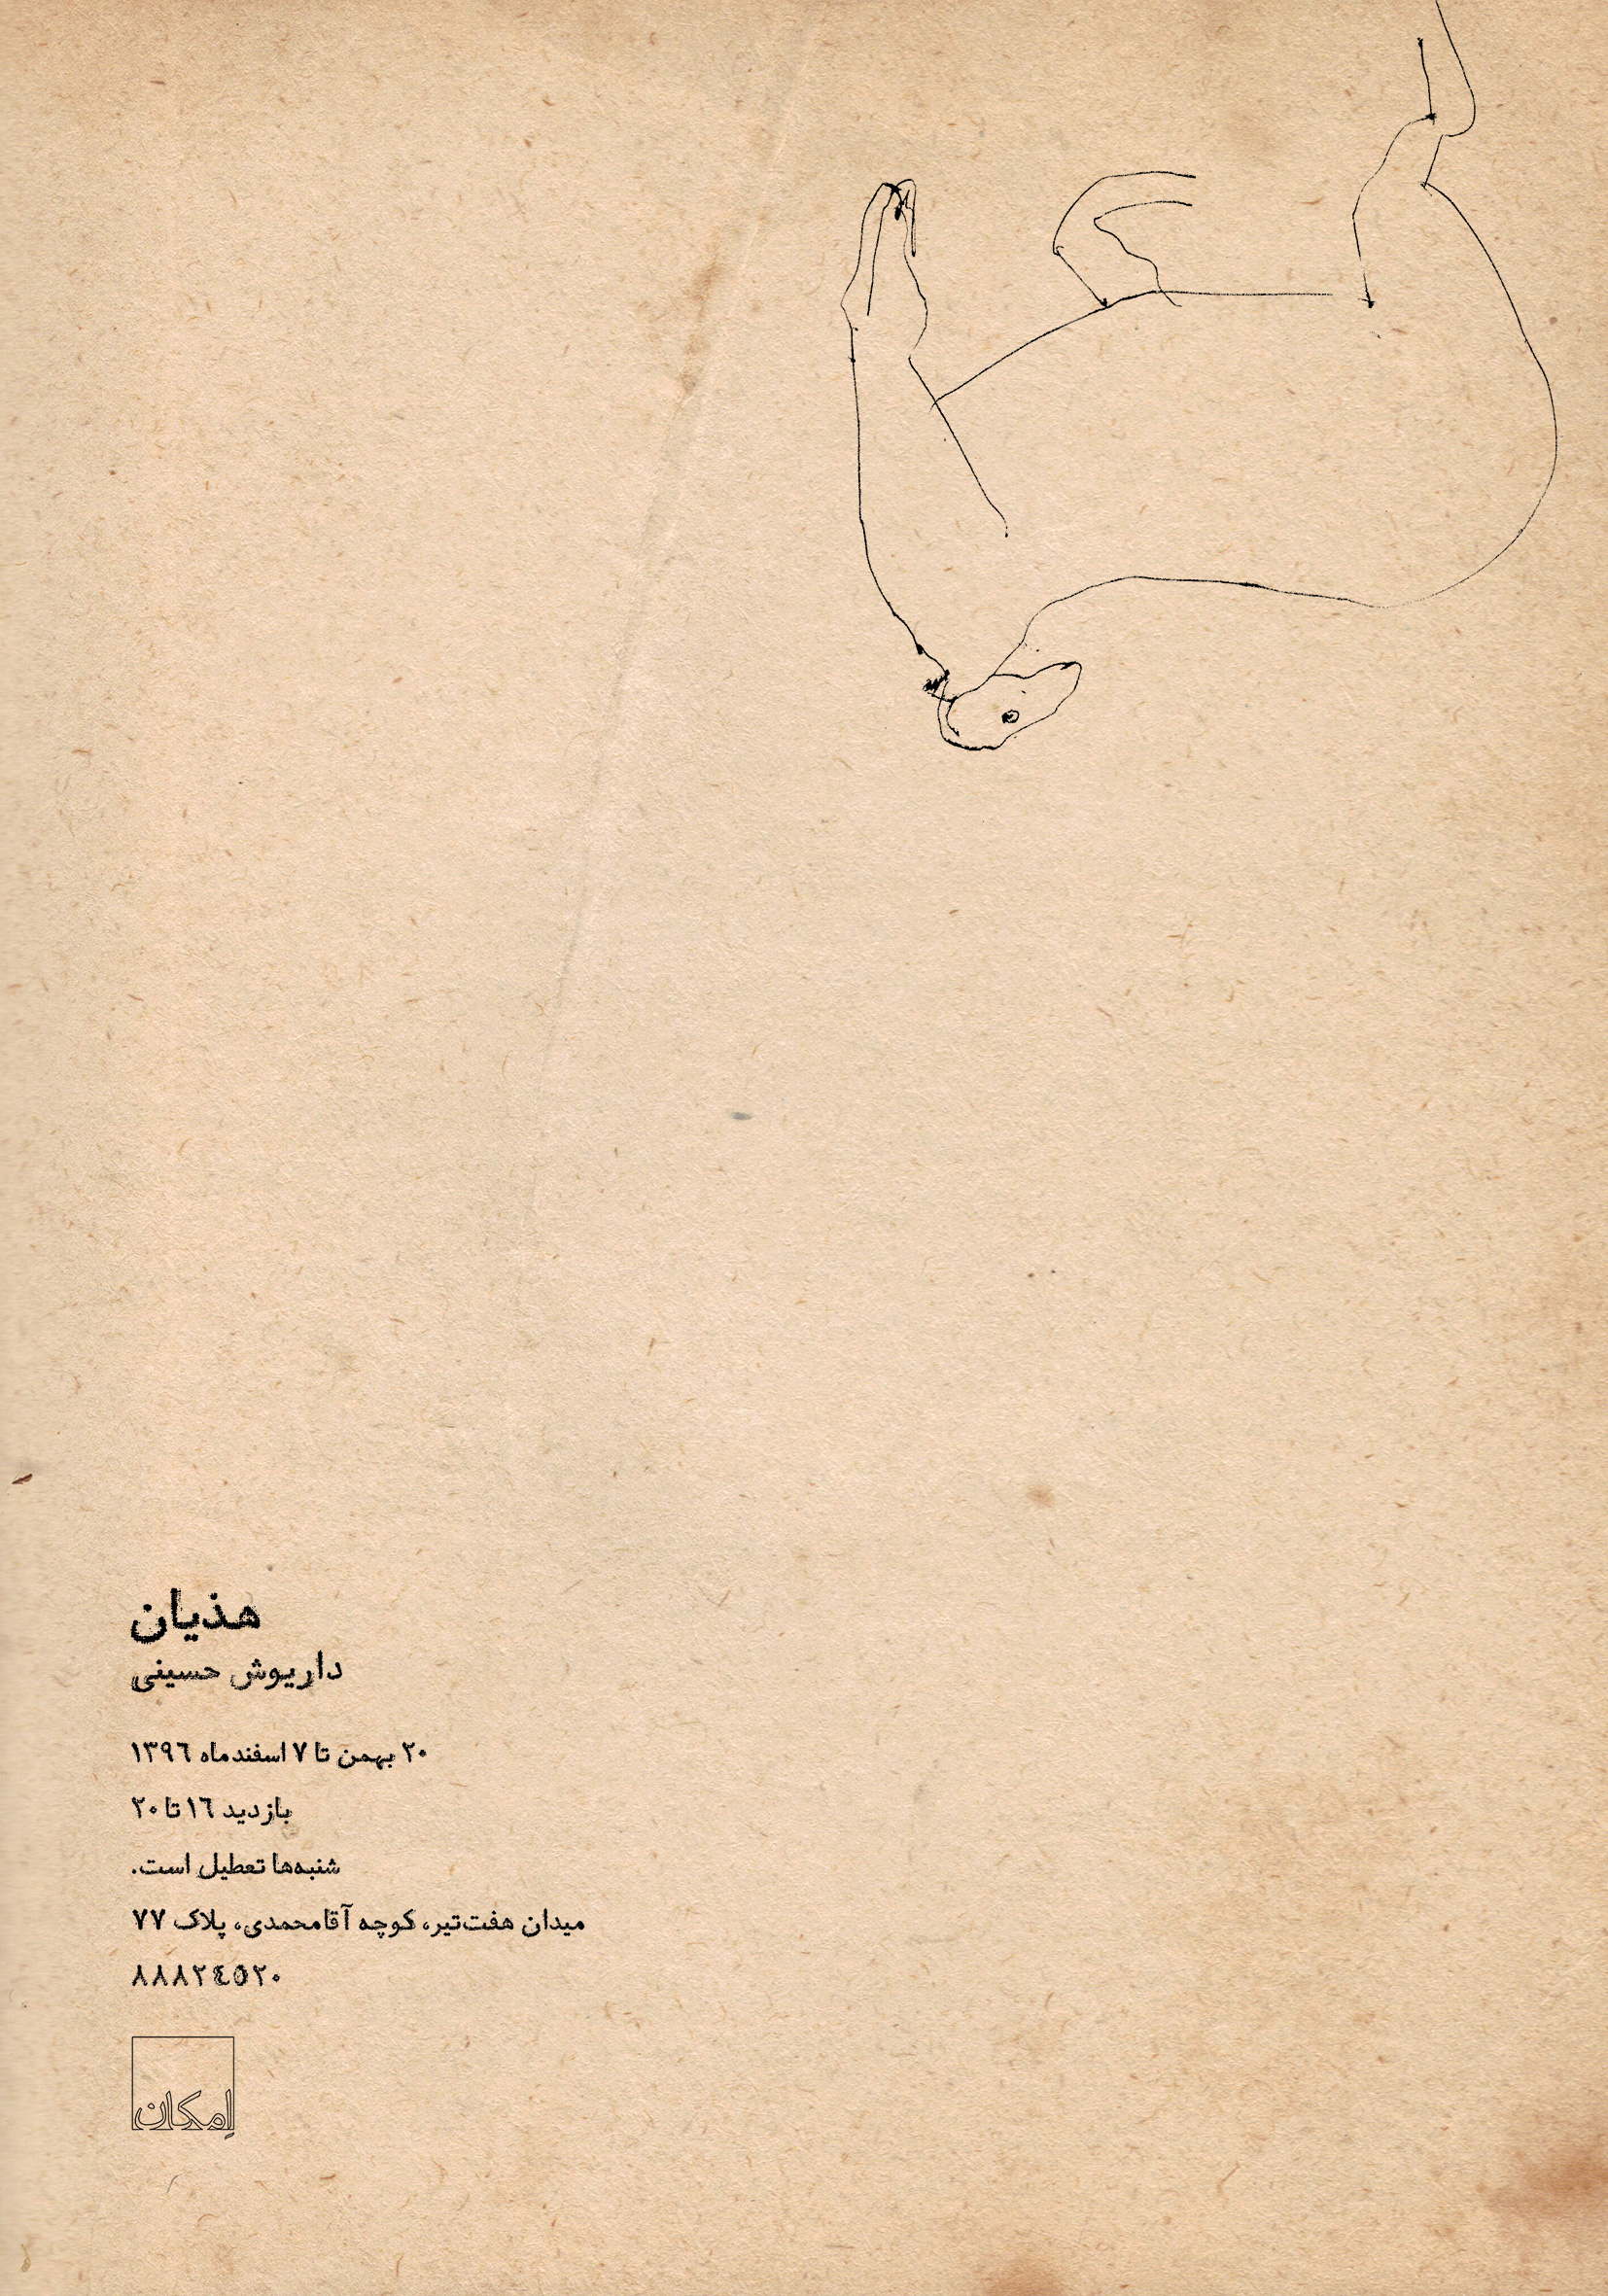 هذیان
داریوش حسینی
۲۰ بهمن تا ۷ اسفندماه ۱۳۹٦
بازدید ۱٦ تا ۲۰
شنبه‌ها تعطیل است.
میدان هفت‌تیر، کوچه آقامحمدی، پلاک ۷۷
۸۸۸۲٤۵۲۰
اِمکان